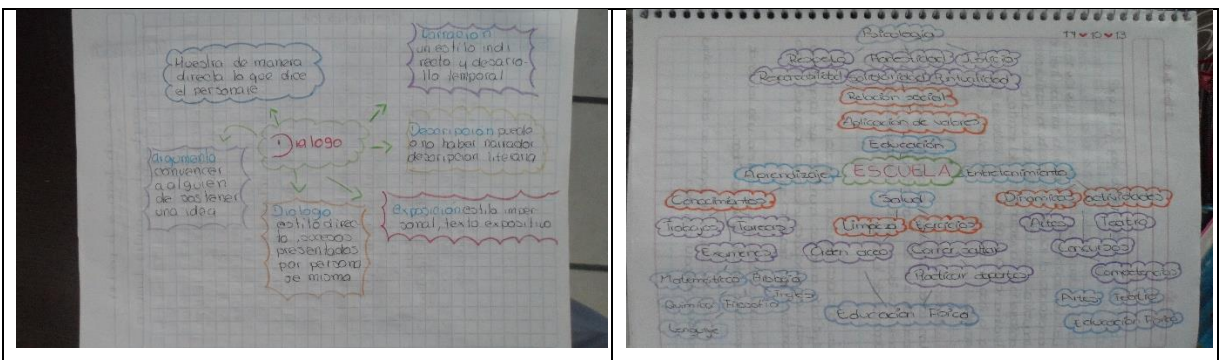 Muestra de manera
directa lo que dice
el personaje
Narracion
un estilo indi
recto y desarro
llo temporal
Dialogo
Descripcion puede
o no haber narrador
descripcion literaria
argumento
convencer
a alguien
de sostener
una idea
Dialogo
estilo direc
to, sucesos
presentados
por persona
je misma
exposicion estilo imper
sonal, texto expositivo
Psicología
11 10 13
Respeto Honestidad Justicia
Responsabilidad Solidaridad Puntualidad
Relación social
Aplicación de valores
Educación
Aprendizaje ESCUELA Entretenimiento
Conocimientos Salud Dinamicas actividades
Trabajos Tareas Limpieza Ejercicios Artes Teatro
Examenes Orden aseo Correr saltar Concursos
Matematicas Biología Practicar deportes Competencias
Quimica Filosofia Ingles Educación Fisica Artes Teatro
Lenguaje Educación Fisica